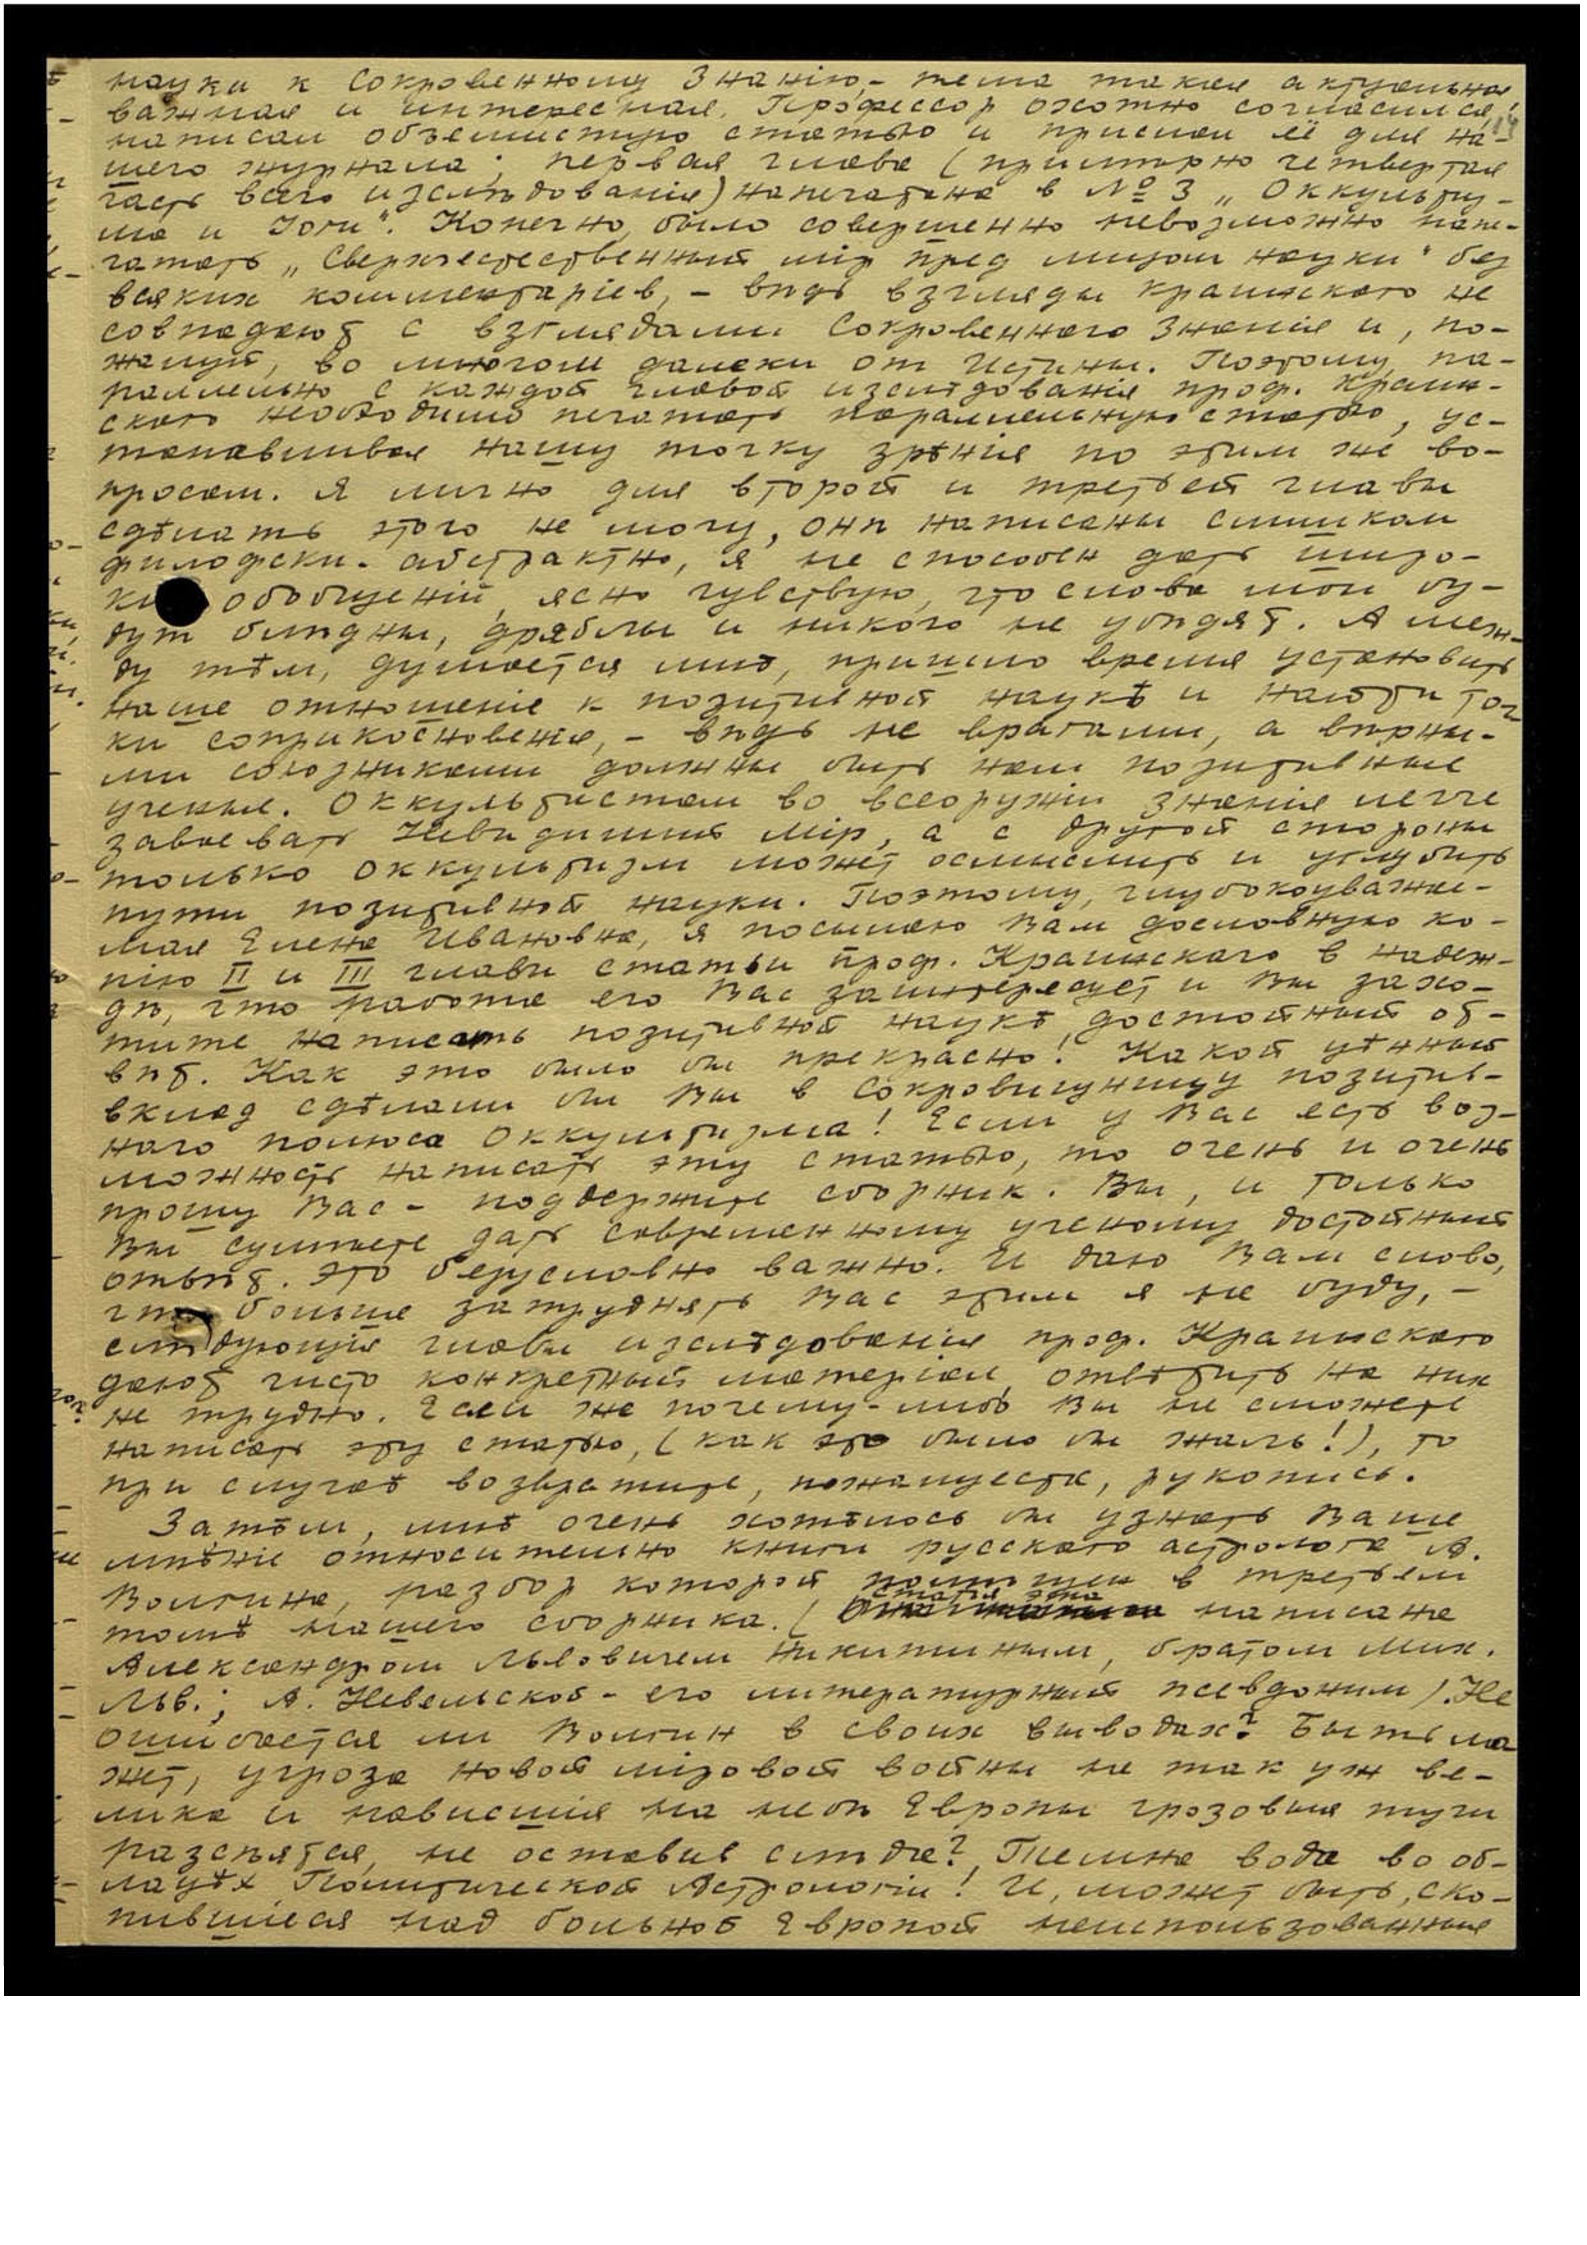 науки к Сокровенному Знанію,- тема такая актуальная
важная и интересная. Профессор охотно согласился,
написал объемистую статью и прислал её для на-
шего журнала; первая глава (примѣрно четвертая
часть всего изслѣдованія) напечатана в № 3 „Оккультиз-
ма и Іоги". Конечно, было совершенно невозможно напе-
чатать „Сверхестественный мір пред лицом науки" без
всяких комментаріев, - вѣдь взгляды Краинскаго не
совпадают с взглядами Сокровенного Знанія и, по-
жалуй, во многом далеки от Истины. Поэтому, па-
раллельно с каждой главой изслѣдованія проф. Краин-
ского необходимо печатать параллельную статью, ус-
танавливая нашу точку зрѣнія по этим же во-
просам. Я лично для второй и третьей главы
сдѣлать этого не могу, онѣ написаны слишком
филофски-абстрактно, я не способен дать широ-
ких обобщеній, ясно чувствую, что слова мои бу-
дут блѣдны, дряблы и никого не убѣдят. А меж-
ду тѣм, думается мнѣ, пришло время установить
наше отношеніе к позитивной наукѣ и найти точ-
ки соприкосновенія, - вѣдь не врагами, а вѣрны-
ми союзниками должны быть нам позитивные
ученые. Оккультистам во всеоружіи знанія легче
завоевать Невидимый Мір, а с другой стороны
только оккультизм может осмыслить и углубить
пути позитивной науки. Поэтому, глубокоуважае-
мая Елена Ивановна, я посылаю Вам дословную ко-
пію II и III главы статьи проф. Краинскаго в надеж-
дѣ, что работа его Вас заинтересует и Вы захо-
тите написать позитивной наукѣ достойный от-
вѣт. Как это было бы прекрасно! Какой цѣнный
вклад сдѣлали бы Вы в сокровищницу позитив-
ного полюса Оккультизма! Если у Вас есть воз-
можность написать эту статью, то очень и очень
прошу Вас - поддержите сборник. Вы, и только
Вы сумѣете дать современному ученому достойный
отвѣт. Это безусловно важно. И даю Вам слово,
что больше затруднять Вас этим я не буду, -
слѣдующія главы изслѣдованія проф. Краинскаго
дают чисто конкретный матеріал, отвѣтить на них
не трудно. Если же почему-либо Вы не сможете
написать эту статью, (как это было бы жаль!), то
при случаѣ возвратите, пожалуеста, рукопись.
Затѣм, мнѣ очень хотѣлось бы узнать Ваше
мнѣніе относительно книги русскаго астролога А.
Волгина, разбор которой помѣщен в третьем
томѣ нашего сборника. (Статья эта написана
Александром Львовичем Никитиным, братом Мих.
Льв.; А. Невельской - его литературный псевдоним). Не
ошибается ли Волгин в своих выводах? Быть мо
жет, угроза новой міровой войны не так уж ве-
лика и нависшія на небѣ Европы грозовыя тучи
разсѣятся, не оставив слѣда? Темна вода во об-
лацѣх Политической Астрологіи! И, может быть, ско-
пившіеся над больной Европой неиспользованные